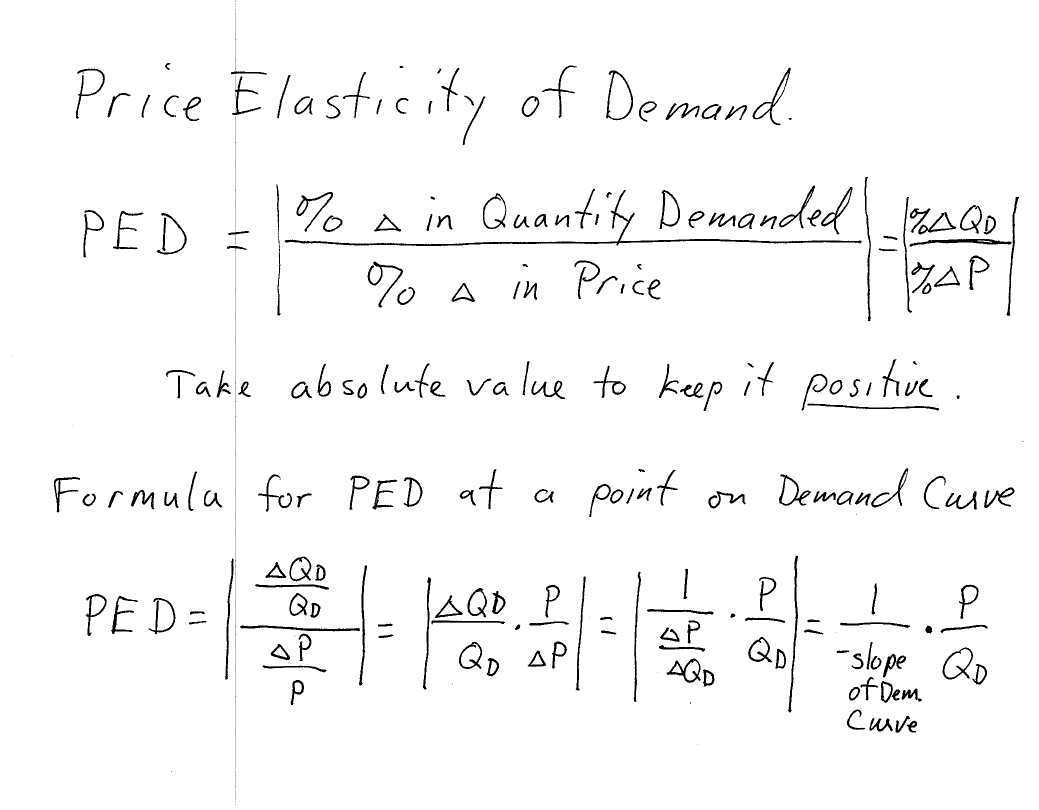 Price Elasticity of Demand.
PED = | % Δ in Quantity Demanded / % Δ in Price | = | %ΔQD / %ΔP |
Take absolute value to keep it positive.
Formula for PED at a point on Demand Curve
PED = | (ΔQD / QD) / (ΔP / P) | = | ΔQD / QD · P / ΔP | = | 1 / (ΔP / ΔQD) · P / QD | = 1 / -slope of Dem. Curve · P / QD